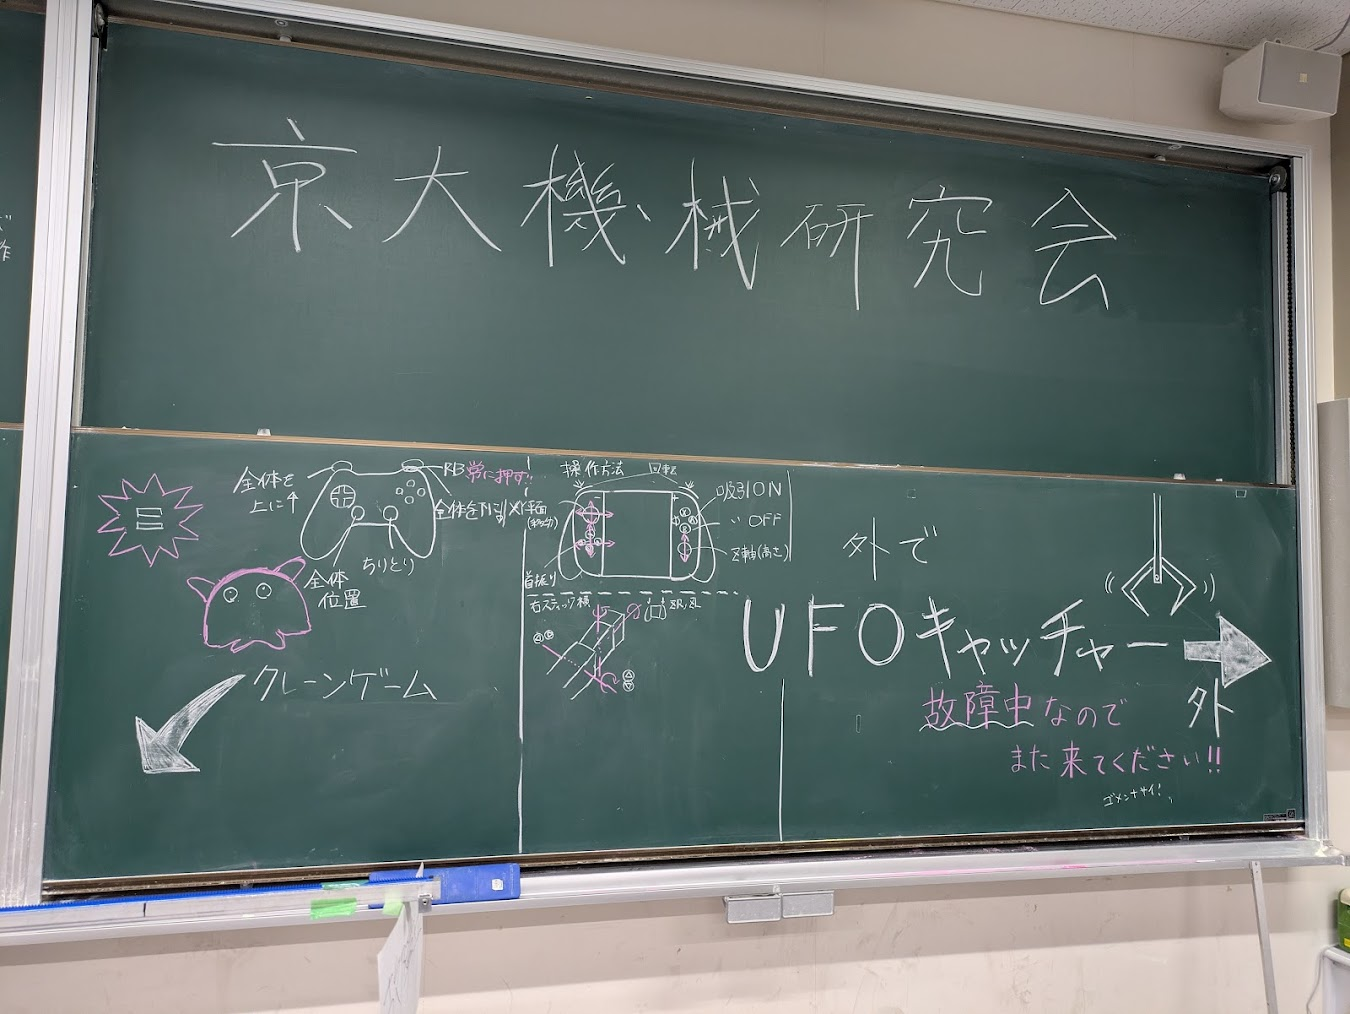 京大機械研究会
全体を
上に↑
RB 常に押す!!
全体を下に↓
全体
位置
ちりとり
クレーンゲーム
操作方法
回転
XY平面
(移動)
吸引ON
〃 OFF
Z軸(高さ)
首振り
右スティック横
ZR,ZL
外で
UFOキャッチャー
外
故障中なので
また来てください!!
ゴメンナサイ!